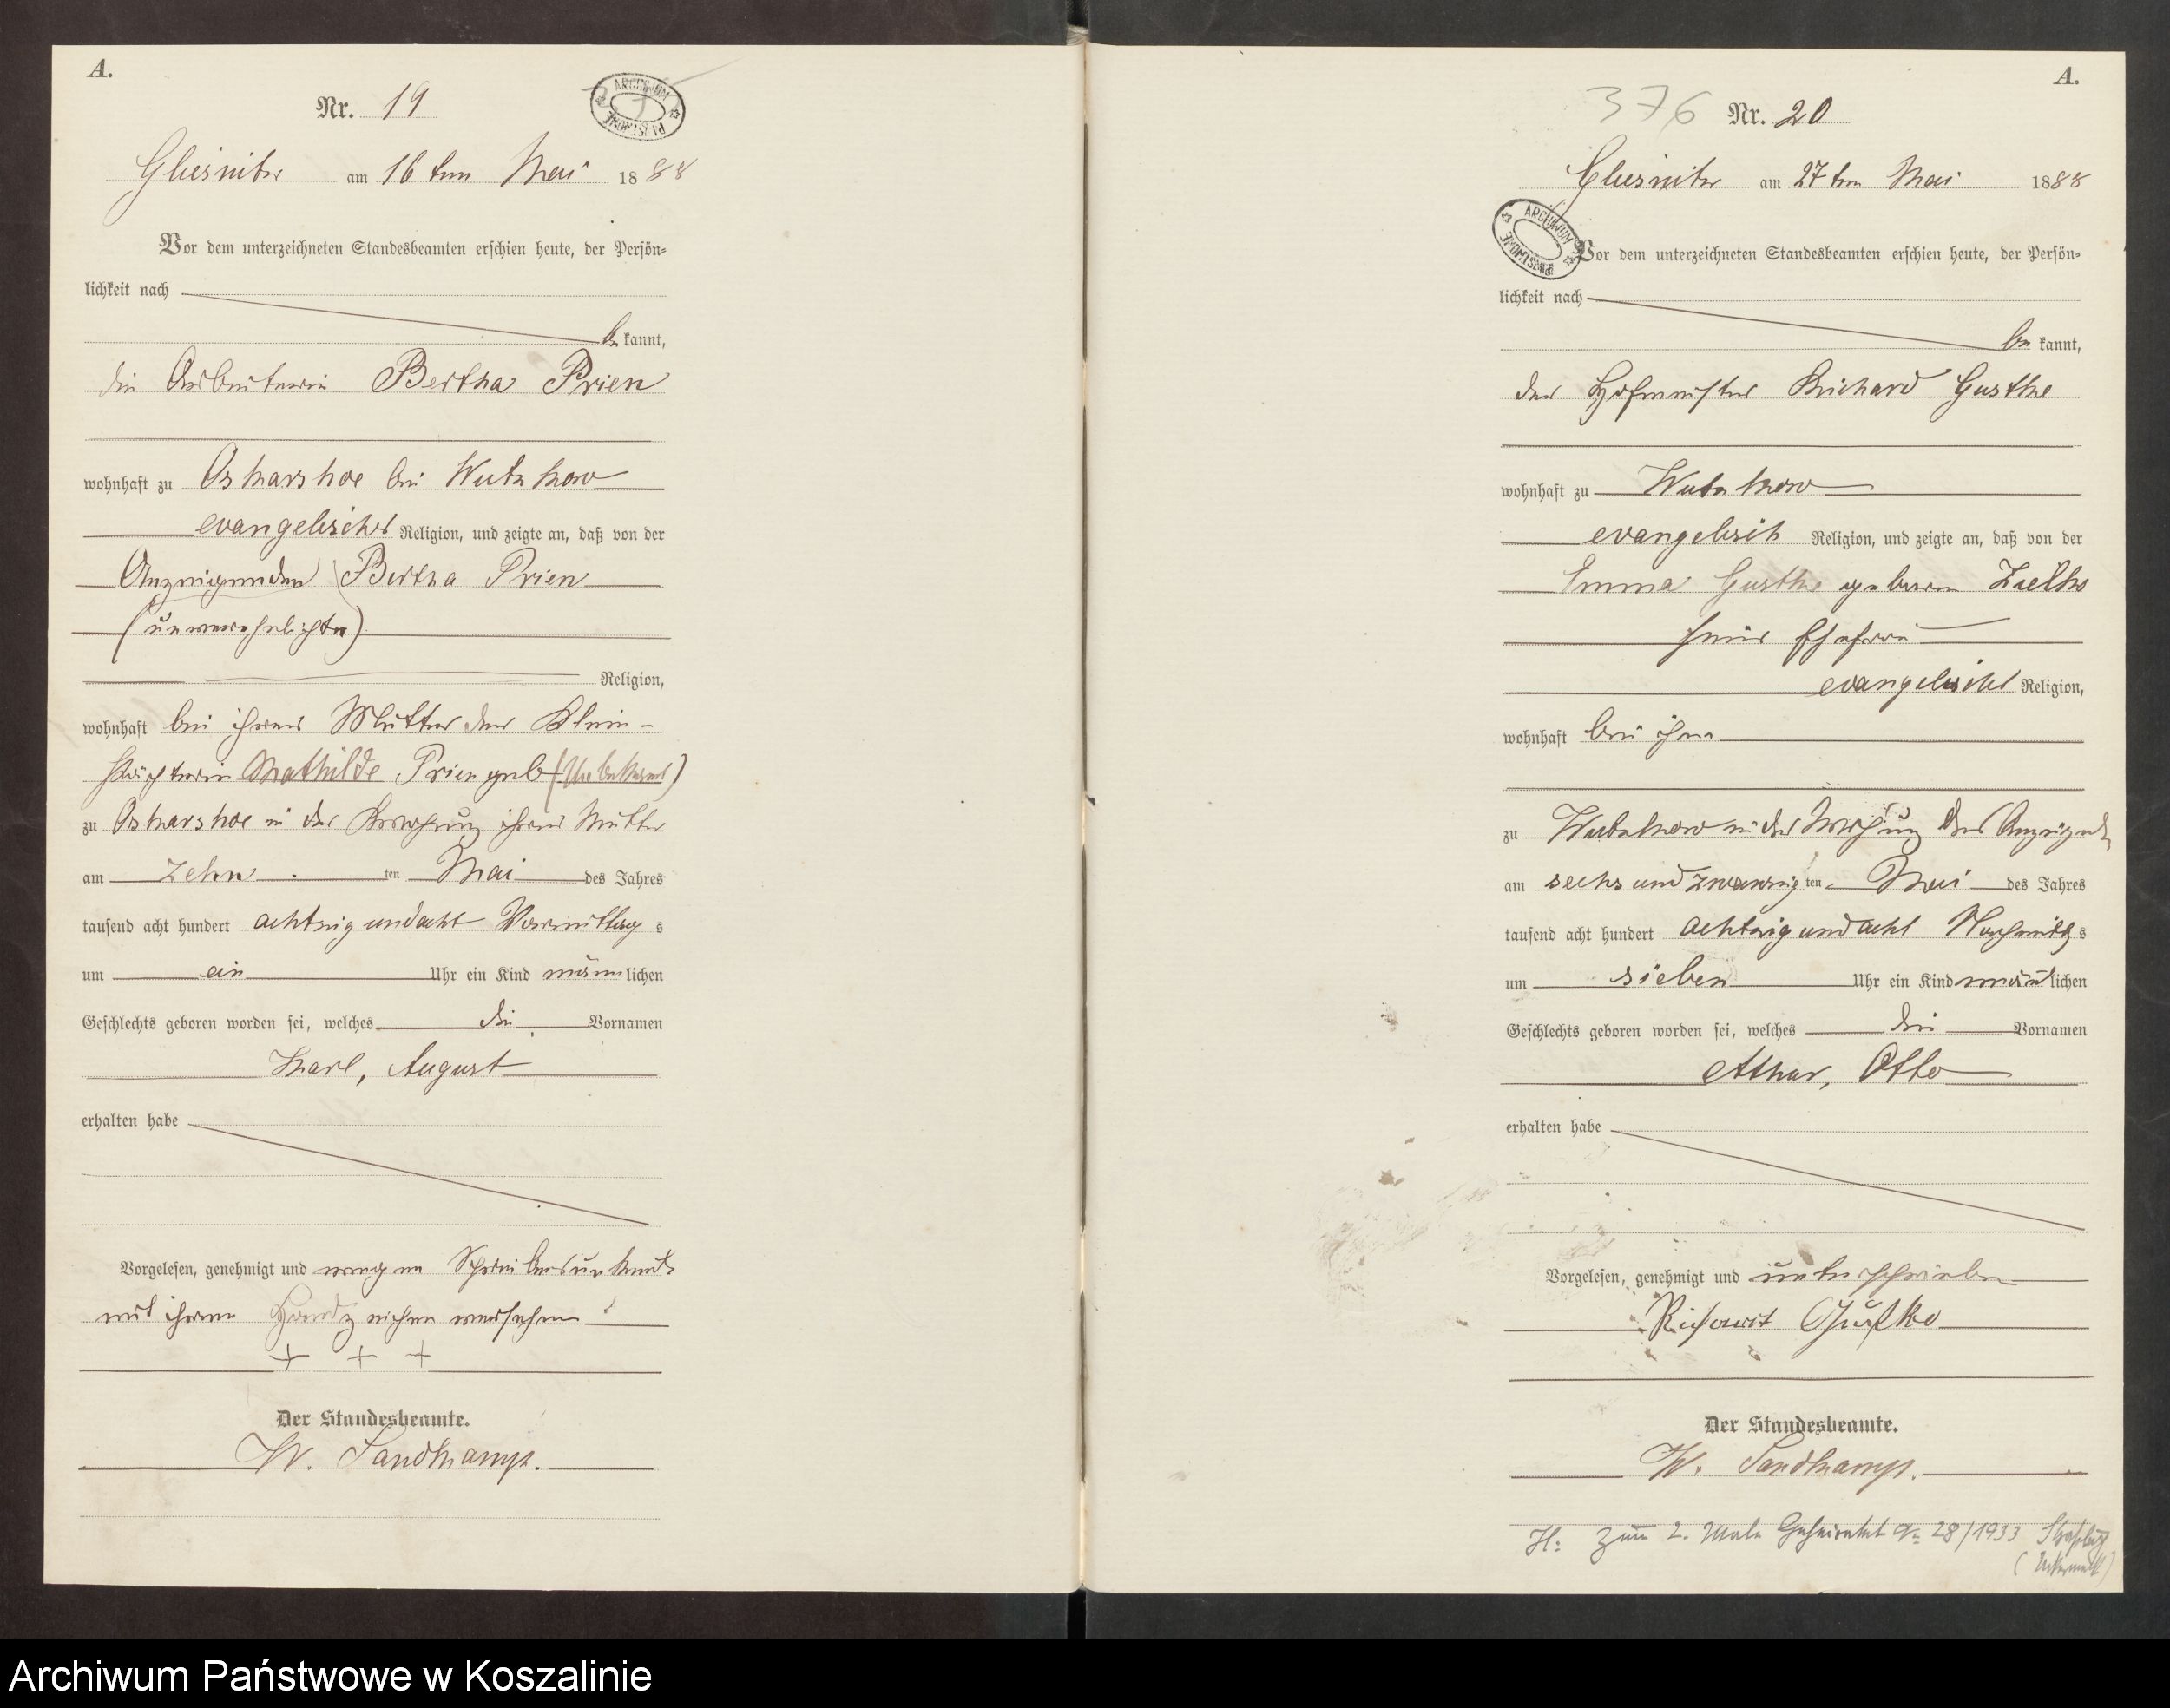 A.
Nr. 19
ARCHIWUM PAŃSTWOWE
Gliesnitz am 16 ten Mai 1888
Vor dem unterzeichneten Standesbeamten erschien heute, der Persön-
lichkeit nach
be kannt,
die Arbeiterin Bertha Prien
wohnhaft zu Oskarshoe bei Wutzkow
evangelischer Religion, und zeigte an, daß von der
Anzeigenden Bertha Prien
(unverehelichte)
Religion,
wohnhaft bei ihrer Mutter der Klein-
pächterin Mathilde Prien geb (Unbekannt)
zu Oskarshoe in der Wohnung ihrer Mutter
am zehn ten Mai des Jahres
tausend acht hundert achtzig und acht Vormittag s
um ein Uhr ein Kind männlichen
Geschlechts geboren worden sei, welches die Vornamen
Karl, August
erhalten habe
Vorgelesen, genehmigt und wegen Schreibensunkunde
mit ihrem Handzeichen versehen
+ + +
Der Standesbeamte.
W. Sandkamp.
A.
376 Nr. 20
Gliesnitz am 27 ten Mai 1888
ARCHIWUM PAŃSTWOWE
Vor dem unterzeichneten Standesbeamten erschien heute, der Persön-
lichkeit nach
be kannt,
der Hofmeister Richard Gustke
wohnhaft zu Wutzkow
evangelisch Religion, und zeigte an, daß von der
Emma Gustke geboren Zielke
seiner Ehefrau
evangelischer Religion,
wohnhaft bei ihm
zu Wutzkow in der Wohnung des Anzeigenden
am sechs und zwanzig ten Mai des Jahres
tausend acht hundert achtzig und acht Nachmittag s
um sieben Uhr ein Kind männlichen
Geschlechts geboren worden sei, welches die Vornamen
Otto
erhalten habe
Vorgelesen, genehmigt und unterschrieben
Richard Gustke
Der Standesbeamte.
W. Sandkamp.
H: Zum 2. Male Geheiratet Nr. 28/1933 Straßburg
(Uckermark)
Archiwum Państwowe w Koszalinie